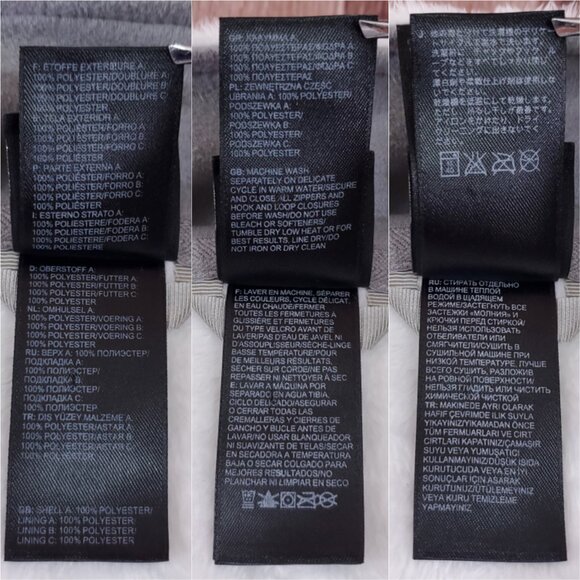 F: ETOFFE EXTERIEURE A:
100% POLYESTER/DOUBLURE A:
100% POLYESTER/DOUBLURE B:
100% POLYESTER/DOUBLURE C:
100% POLYESTER
E: TELA EXTERIOR A:
100% POLIÉSTER/FORRO A:
100% POLIÉSTER/FORRO B:
100% POLIÉSTER/FORRO C:
100% POLIÉSTER
P: PARTE EXTERNA A:
100% POLIÉSTER/FORRO A:
100% POLIÉSTER/FORRO B:
100% POLIÉSTER/FORRO C:
100% POLIÉSTER
I: ESTERNO STRATO A:
100% POLIESTERE/FODERA A:
100% POLIESTERE/FODERA B:
100% POLIESTERE/FODERA C:
100% POLIESTERE
D: OBERSTOFF A:
100% POLYESTER/FUTTER A:
100% POLYESTER/FUTTER B:
100% POLYESTER/FUTTER C:
100% POLYESTER
NL: OMHULSEL A:
100% POLYESTER/VOERING A:
100% POLYESTER/VOERING B:
100% POLYESTER/VOERING C:
100% POLYESTER
RU: ВЕРХ А: 100% ПОЛИЭСТЕР/
ПОДКЛАДКА А:
100% ПОЛИЭСТЕР/
ПОДКЛАДКА В:
100% ПОЛИЭСТЕР/
ПОДКЛАДКА С:
100% ПОЛИЭСТЕР
TR: DIS YÜZEY MALZEME A:
100% POLYESTER/ASTAR A:
100% POLYESTER/ASTAR B:
100% POLYESTER/ASTAR C:
100% POLYESTER
GB: SHELL A: 100% POLYESTER/
LINING A: 100% POLYESTER/
LINING B: 100% POLYESTER/
LINING C: 100% POLYESTER
100% ΠΟΛΥΕΣΤΕΡΑΣ/ΦΟΔΡΑ A:
100% ΠΟΛΥΕΣΤΕΡΑΣ/ΦΟΔΡΑ B:
100% ΠΟΛΥΕΣΤΕΡΑΣ/ΦΟΔΡΑ C:
100% ΠΟΛΥΕΣΤΕΡΑΣ
PL: ZEWNĘTRZNA CZĘŚĆ
UBRANIA A: 100% POLYESTER/
PODSZEWKA A:
100% POLYESTER/
PODSZEWKA B:
100% POLYESTER/
PODSZEWKA C:
100% POLYESTER
GB: MACHINE WASH
SEPARATELY ON DELICATE
CYCLE IN WARM WATER/SECURE
AND CLOSE ALL ZIPPERS AND
HOOK AND LOOP CLOSURES
BEFORE WASH/DO NOT USE
BLEACH OR SOFTENERS/
TUMBLE DRY LOW HEAT OR FOR
BEST RESULTS, LINE DRY/DO
NOT IRON OR DRY CLEAN
F: LAVER EN MACHINE, SÉPARER
LES COULEURS, CYCLE DÉLICAT,
EN EAU CHAUDE/FERMER
TOUTES LES FERMETURES A
GLISSIÈRE ET FERMETURES
DU TYPE VELCRO AVANT DE
LAVER/PAS D'EAU DE JAVEL NI
D'ASSOUPLISSEUR/SÈCHE-LINGE
BASSE TEMPÉRATURE/POUR
DE MEILLEURS RÉSULTATS,
SÉCHER SUR CORDE/NE PAS
REPASSER NI NETTOYER À SEC
E: LAVAR A MÁQUINA POR
SEPARADO EN AGUA TIBIA,
CICLO DELICADO/ASEGURAR
O CERRAR TODAS LAS
CREMALLERAS Y CIERRES DE
GANCHO Y BUCLE ANTES DE
LAVAR/NO USAR BLANQUEADOR
NI SUAVIZANTE DE TELAS/SECAR
EN SECADORA A TEMPERATURA
BAJA O SECAR COLGADO PARA
MEJORES RESULTADOS/NO
PLANCHAR NI LIMPIAR EN SECO
RU: СТИРАТЬ ОТДЕЛЬНО
В МАШИНЕ ТЕПЛОЙ
ВОДОЙ В ЩАДЯЩЕМ
РЕЖИМЕ/ЗАСТЕГНУТЬ ВСЕ
ЗАСТЕЖКИ «МОЛНИЯ» И
КРЮЧКИ ПЕРЕД СТИРКОЙ/
НЕЛЬЗЯ ИСПОЛЬЗОВАТЬ
ОТБЕЛИВАТЕЛИ ИЛИ
СМЯГЧИТЕЛИ/СУШИТЬ В
СУШИЛЬНОЙ МАШИНЕ ПРИ
НИЗКОЙ ТЕМПЕРАТУРЕ, ЛУЧШЕ
ВСЕГО СУШИТЬ, РАЗЛОЖИВ
НА РОВНОЙ ПОВЕРХНОСТИ/
НЕЛЬЗЯ ГЛАДИТЬ ИЛИ ЧИСТИТЬ
ХИМИЧЕСКОЙ ЧИСТКОЙ
TR: MAKİNEDE AYRI OLARAK
HAFİF ÇEVRİMDE ILIK SUYLA
YIKAYIN/YIKAMADAN ÖNCE
TÜM FERMUARLARI VE CIRT
CIRTLARI KAPATINIZ/ÇAMAŞIR
SUYU VEYA YUMUŞATICI
KULLANMAYINIZ/DÜŞÜK ISIDA
KURUTUCUDA VEYA EN İYİ
SONUÇLAR İÇİN ASARAK
KURUTUNUZ/ÜTÜLEMEYİNİZ
VEYA KURU TEMİZLEME
YAPMAYINIZ